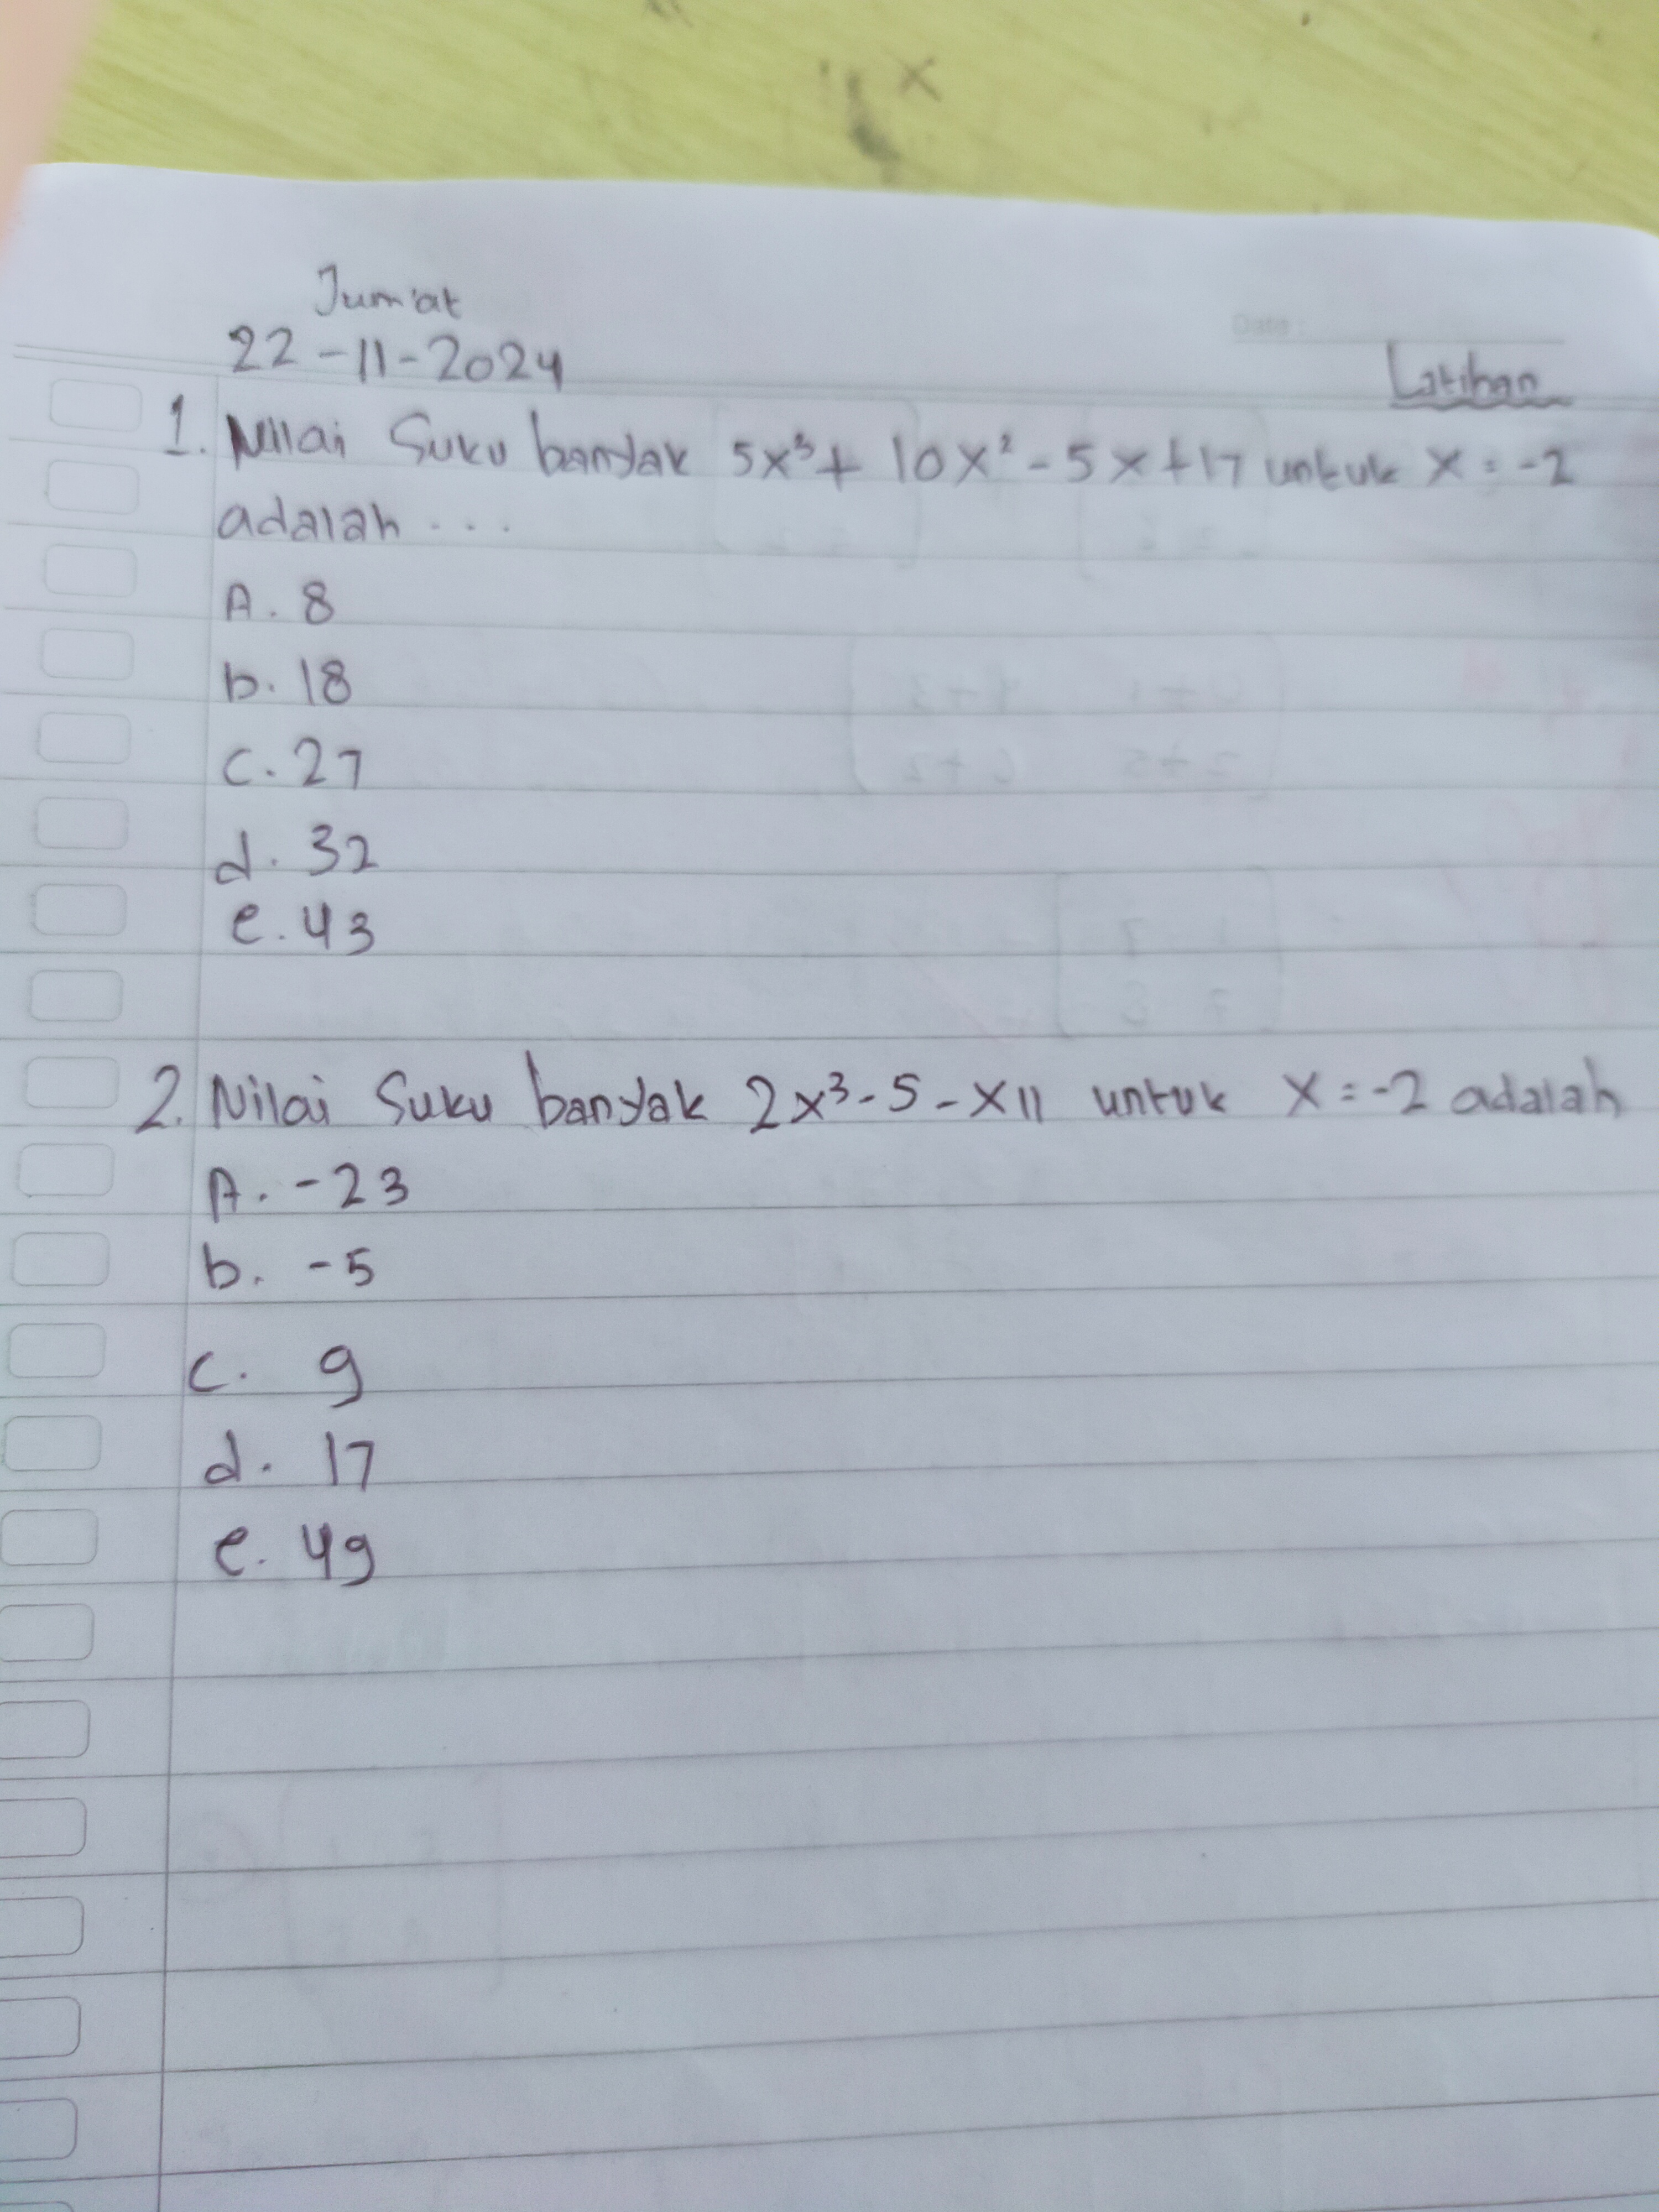 Jum'at
22-11-2024
Date:
Latihan
1. Nilai Suku banyak 5x³ + 10x² - 5x + 17 untuk x = -2
adalah ...
A. 8
b. 18
c. 27
d. 32
e. 43
2. Nilai Suku banyak 2x³ - 5 - x11 untuk x = -2 adalah
A. -23
b. -5
c. 9
d. 17
e. 49